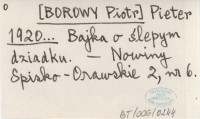 [BOROWY Piotr] Pieter
1920... Bajka o ślepym
dziadku. — Nowiny
Spisko-Orawskie 2, nr 6.
BT/006/0244